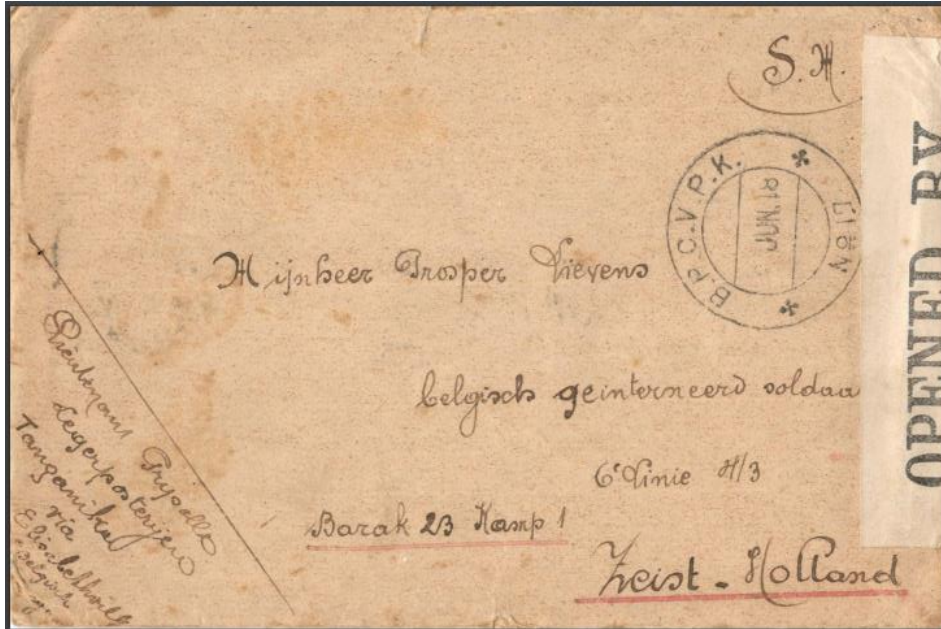 S.M.
B.P.C.V.P.K.
JUN. 18
OPENED BY
Mijnheer Prosper Lievens
belgisch geinterneerd soldaa
6e Linie II/3
Barak 23 Kamp 1
Zeist - Holland
Lieutenant
Legerposterijen
Tanganika
via
Elisabethvill